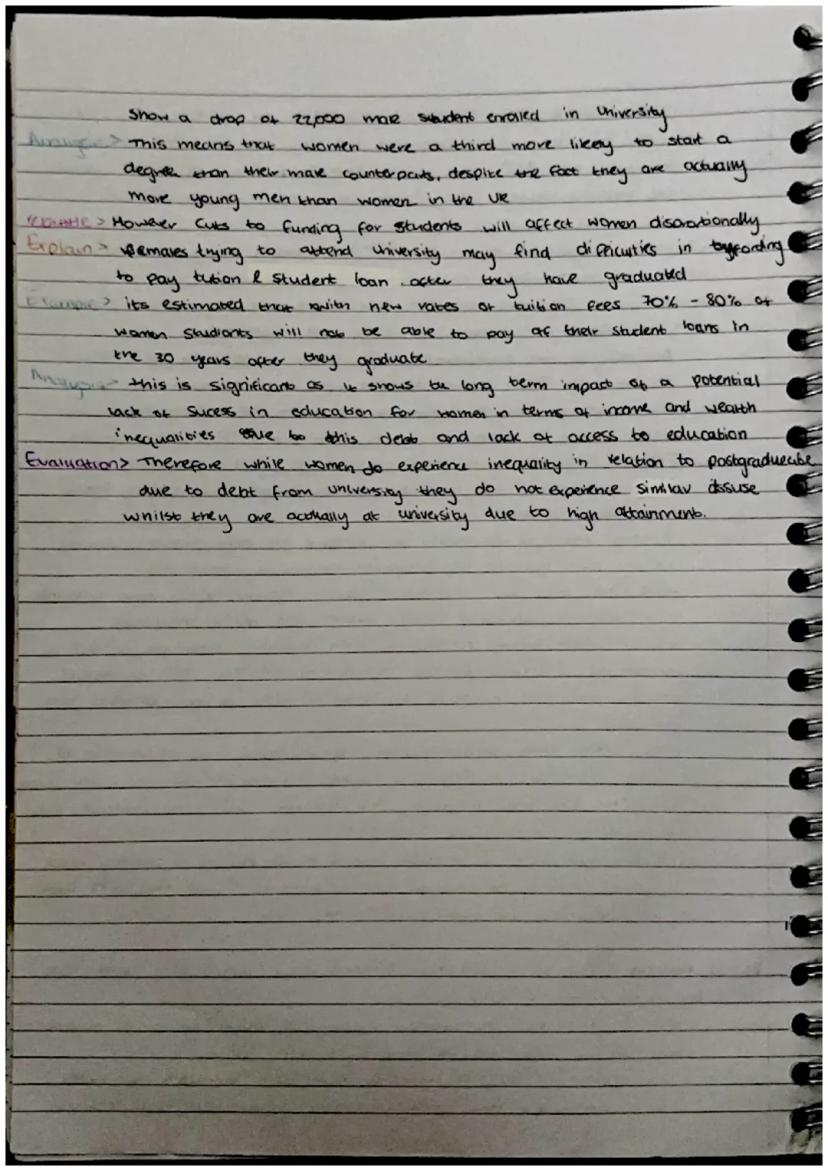 Show a drop of 22,000 male student enroled in University
Analysis > This means that women were a third more likely to start a
degree than their male counterparts, despite the fact they are actually
more young men than women in the UK
> However cuts to funding for students will affect women disorortionally
Explain > females trying to attend university may find difficulties in affording
to pay tution & student loan after they have graduated
Example > its estimated that with new rates of tuition fees 70% - 80% of
women students will not be able to pay of their student loans in
the 30 years after they graduate
Analysis > this is significant as it shows the long term impact of a potential
lack of sucess in education for women in terms of income and wealth
inequalities due to this debt and lack of access to education
Evaluation > Therefore while women do experience inequality in relation to postgraduate
due to debt from university they do not experience similar issuse
whilst they are actually at university due to high attainment.